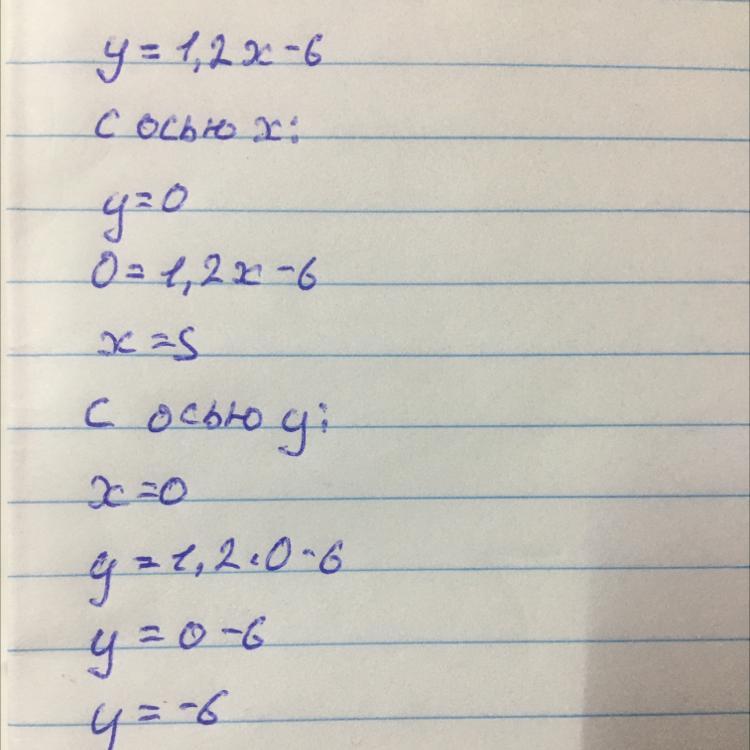 y = 1,2x - 6
С осью x:
y = 0
0 = 1,2x - 6
x = 5
С осью y:
x = 0
y = 1,2 · 0 - 6
y = 0 - 6
y = -6